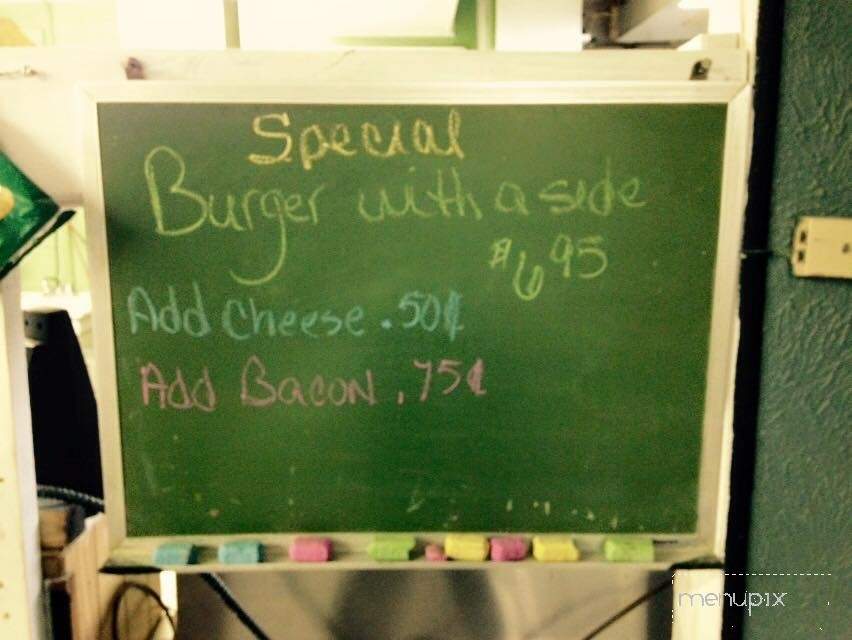 Special
Burger with a side
$6 95
Add Cheese .50¢
Add Bacon .75¢
menupix